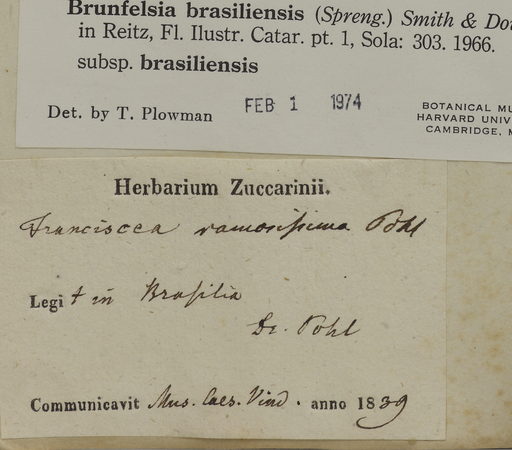 Brunfelsia brasiliensis (Spreng.) Smith & Do
in Reitz, Fl. Ilustr. Catar. pt. 1, Sola: 303. 1966.
subsp. brasiliensis
Det. by T. Plowman FEB 1 1974
BOTANICAL MU
HARVARD UNIV
CAMBRIDGE, M
Herbarium Zuccarinii.
Franciscea ramosissima Pohl
Legit in Brasilia
Dr. Pohl
Communicavit Mus. Caes. Vind. anno 1839